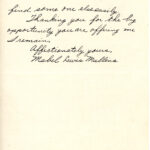 find some one else easily.
Thanking you for the big
opportunity you are offering me
I remain.
Affectionately yours,
Mabel Lewis Mullens